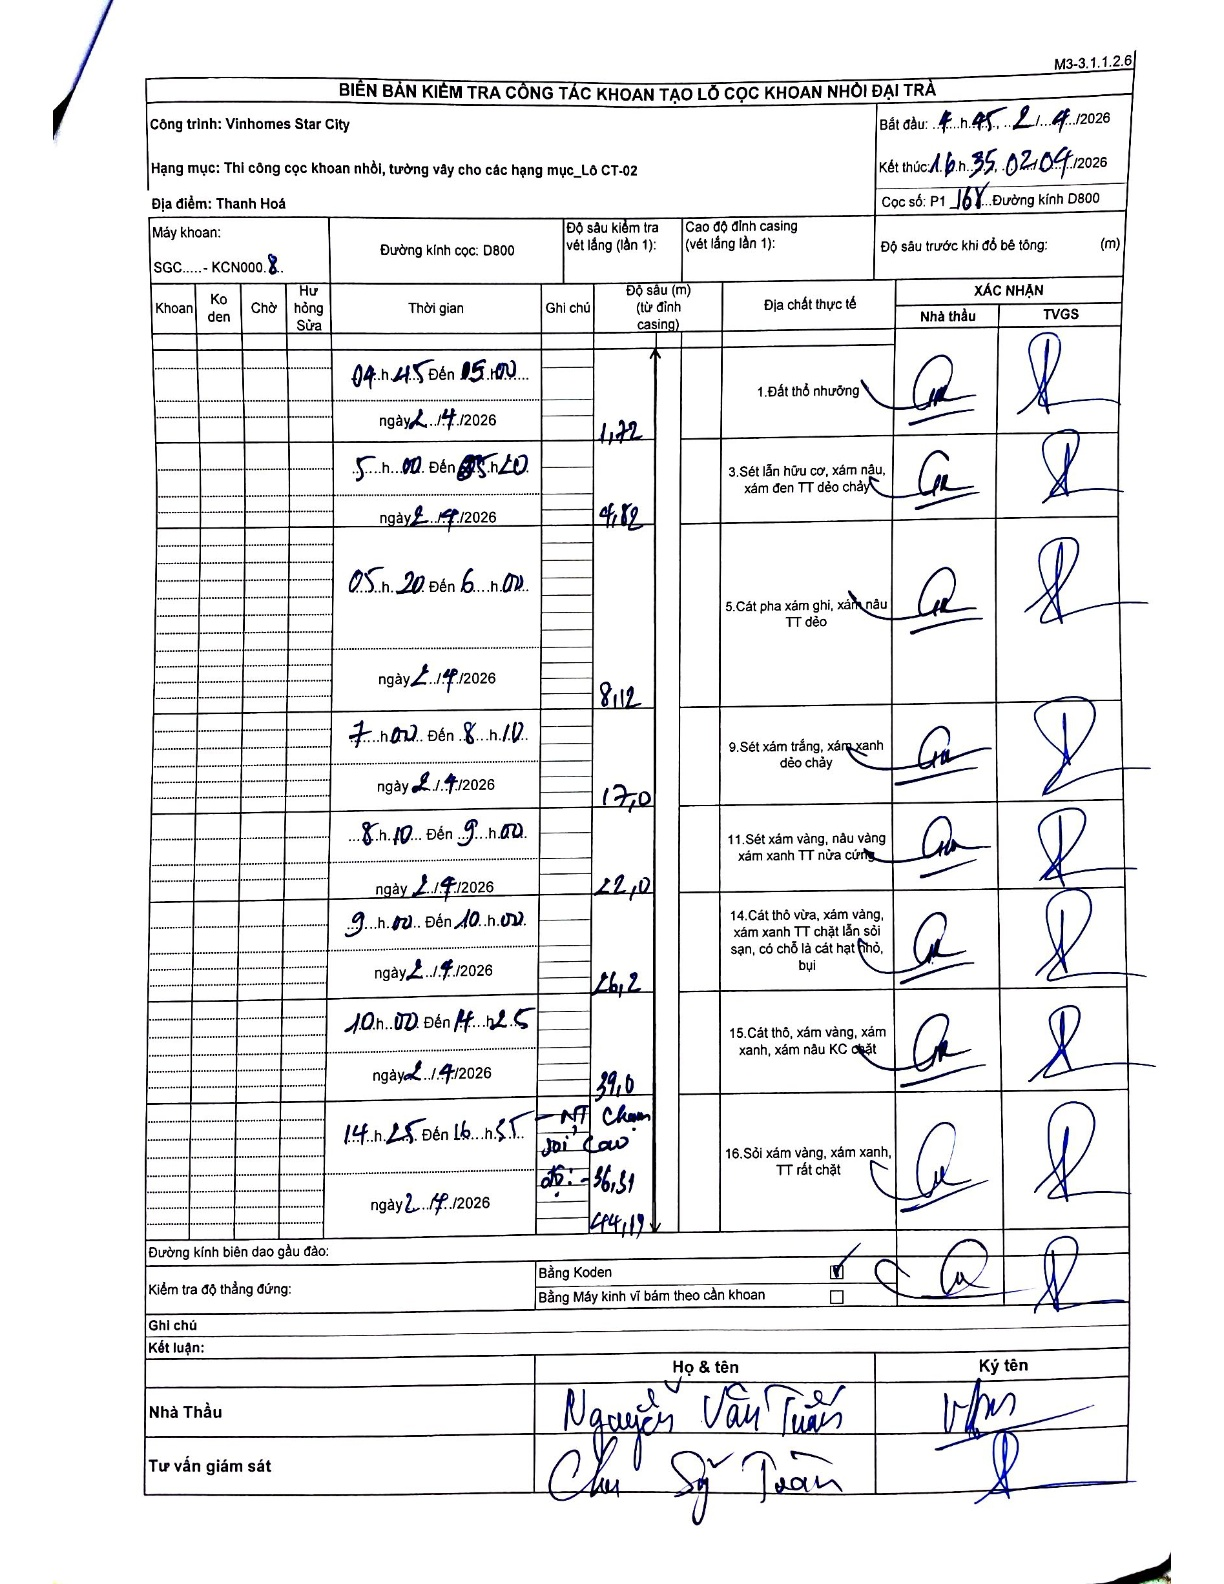 M3-3.1.1.2.6
BIÊN BẢN KIỂM TRA CÔNG TÁC KHOAN TẠO LỖ CỌC KHOAN NHỒI ĐẠI TRÀ
Công trình: Vinhomes Star City
Bắt đầu: ..4...h.45., ..2./...4../2026
Hạng mục: Thi công cọc khoan nhồi, tường vây cho các hạng mục_Lô CT-02
Kết thúc:16.h.35, 02/04/2026
Địa điểm: Thanh Hoá
Cọc số: P1 ...Đường kính D800
Máy khoan:
SGC.....- KCN000.8..
Đường kính cọc: D800
Độ sâu kiểm tra
vét lắng (lần 1):
Cao độ đỉnh casing
(vét lắng lần 1):
Độ sâu trước khi đổ bê tông: (m)
Khoan
Ko
den
Chờ
Hư
hỏng
Sửa
Thời gian
Ghi chú
Độ sâu (m)
(từ đỉnh
casing)
Địa chất thực tế
XÁC NHẬN
Nhà thầu
TVGS
04..h.45 Đến 05.h00....
ngày 2../.4./2026
1,72
1.Đất thổ nhưỡng
.5...h...00. Đến 05h20.
ngày 2../.4./2026
4,82
3.Sét lẫn hữu cơ, xám nâu,
xám đen TT dẻo chảy
05..h. 20 Đến 6....h.00..
ngày 2../.4./2026
8,12
5.Cát pha xám ghi, xám nâu
TT dẻo
7...h00... Đến .8...h.10.
ngày 2./.4./2026
17,0
9.Sét xám trắng, xám xanh
dẻo chảy
...8.h.10... Đến ..9...h.00.
ngày 2../.4./2026
22,0
11.Sét xám vàng, nâu vàng
xám xanh TT nửa cứng
9...h...00.. Đến .10..h.00.
ngày 2../.4./2026
26,2
14.Cát thô vừa, xám vàng,
xám xanh TT chặt lẫn sỏi
sạn, có chỗ là cát hạt nhỏ,
bụi
10.h..00. Đến 14...h25
ngày 2../.4./2026
39,0
15.Cát thô, xám vàng, xám
xanh, xám nâu KC chặt
14..h.25. Đến 16...h.35..
ngày 2.../4../2026
- NT Chạm
sỏi Cao
độ: -36,31
44,19
16.Sỏi xám vàng, xám xanh,
TT rất chặt
Đường kính biên dao gầu đào:
Kiểm tra độ thẳng đứng:
Bằng Koden ☑
Bằng Máy kinh vĩ bám theo cần khoan ☐
Ghi chú
Kết luận:
Họ & tên
Ký tên
Nhà Thầu
Nguyễn Văn Tuấn
Tư vấn giám sát
Chu Sỹ Toàn